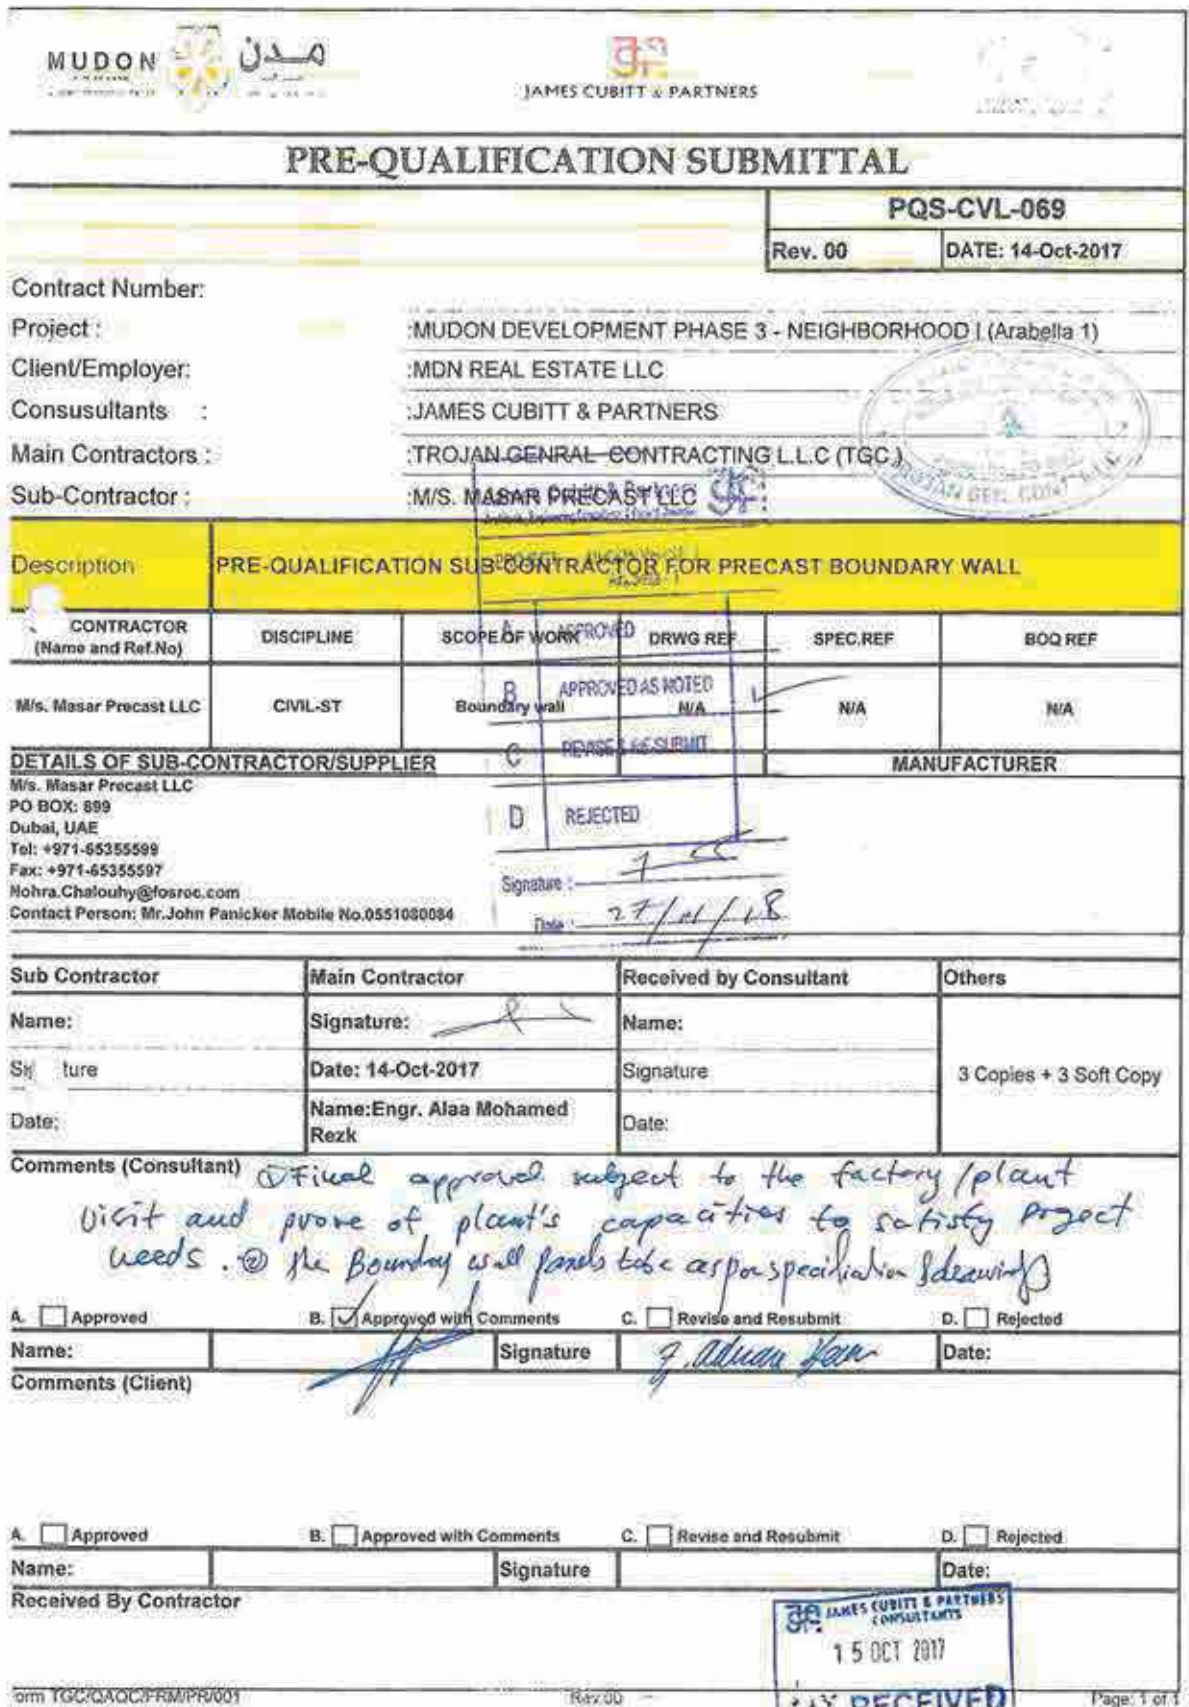 MUDON
مدن
JAMES CUBITT & PARTNERS
PRE-QUALIFICATION SUBMITTAL
PQS-CVL-069
Rev. 00 DATE: 14-Oct-2017
Contract Number:
Project : :MUDON DEVELOPMENT PHASE 3 - NEIGHBORHOOD I (Arabella 1)
Client/Employer: :MDN REAL ESTATE LLC
Consusultants : :JAMES CUBITT & PARTNERS
Main Contractors : :TROJAN GENRAL CONTRACTING L.L.C (TGC )
Sub-Contractor : :M/S. MASAR PRECAST LLC
TROJAN GEN. CONT
Description PRE-QUALIFICATION SUB-CONTRACTOR FOR PRECAST BOUNDARY WALL
PROJECT
CONTRACTOR (Name and Ref.No) DISCIPLINE SCOPE OF WORK DRWG REF SPEC.REF BOQ REF
M/s. Masar Precast LLC CIVIL-ST Boundary wall N/A N/A N/A
A APPROVED
B APPROVED AS NOTED
C REVISE & RE-SUBMIT
D REJECTED
Signature :
Date :
DETAILS OF SUB-CONTRACTOR/SUPPLIER MANUFACTURER
M/s. Masar Precast LLC
PO BOX: 899
Dubai, UAE
Tel: +971-65355599
Fax: +971-65355597
Nohra.Chalouhy@fosroc.com
Contact Person: Mr.John Panicker Mobile No.0551080084
Sub Contractor Main Contractor Received by Consultant Others
Name: Signature: Name:
Date: 14-Oct-2017 Signature 3 Copies + 3 Soft Copy
Date: Name:Engr. Alaa Mohamed Rezk Date:
Comments (Consultant) ① Final approval subject to the factory /plant
visit and prove of plant's capacities to satisfy Project
needs. ② The Boundary wall panels to be as per specification & drawing
A. Approved B. ✓ Approved with Comments C. Revise and Resubmit D. Rejected
Name: Signature Date:
Comments (Client)
A. Approved B. Approved with Comments C. Revise and Resubmit D. Rejected
Name: Signature Date:
Received By Contractor
JAMES CUBITT & PARTNERS
CONSULTANTS
15 OCT 2017
RECEIVED
orm TGC/QAQC/FRM/PR/001 Rev.00 Page: 1 of 1